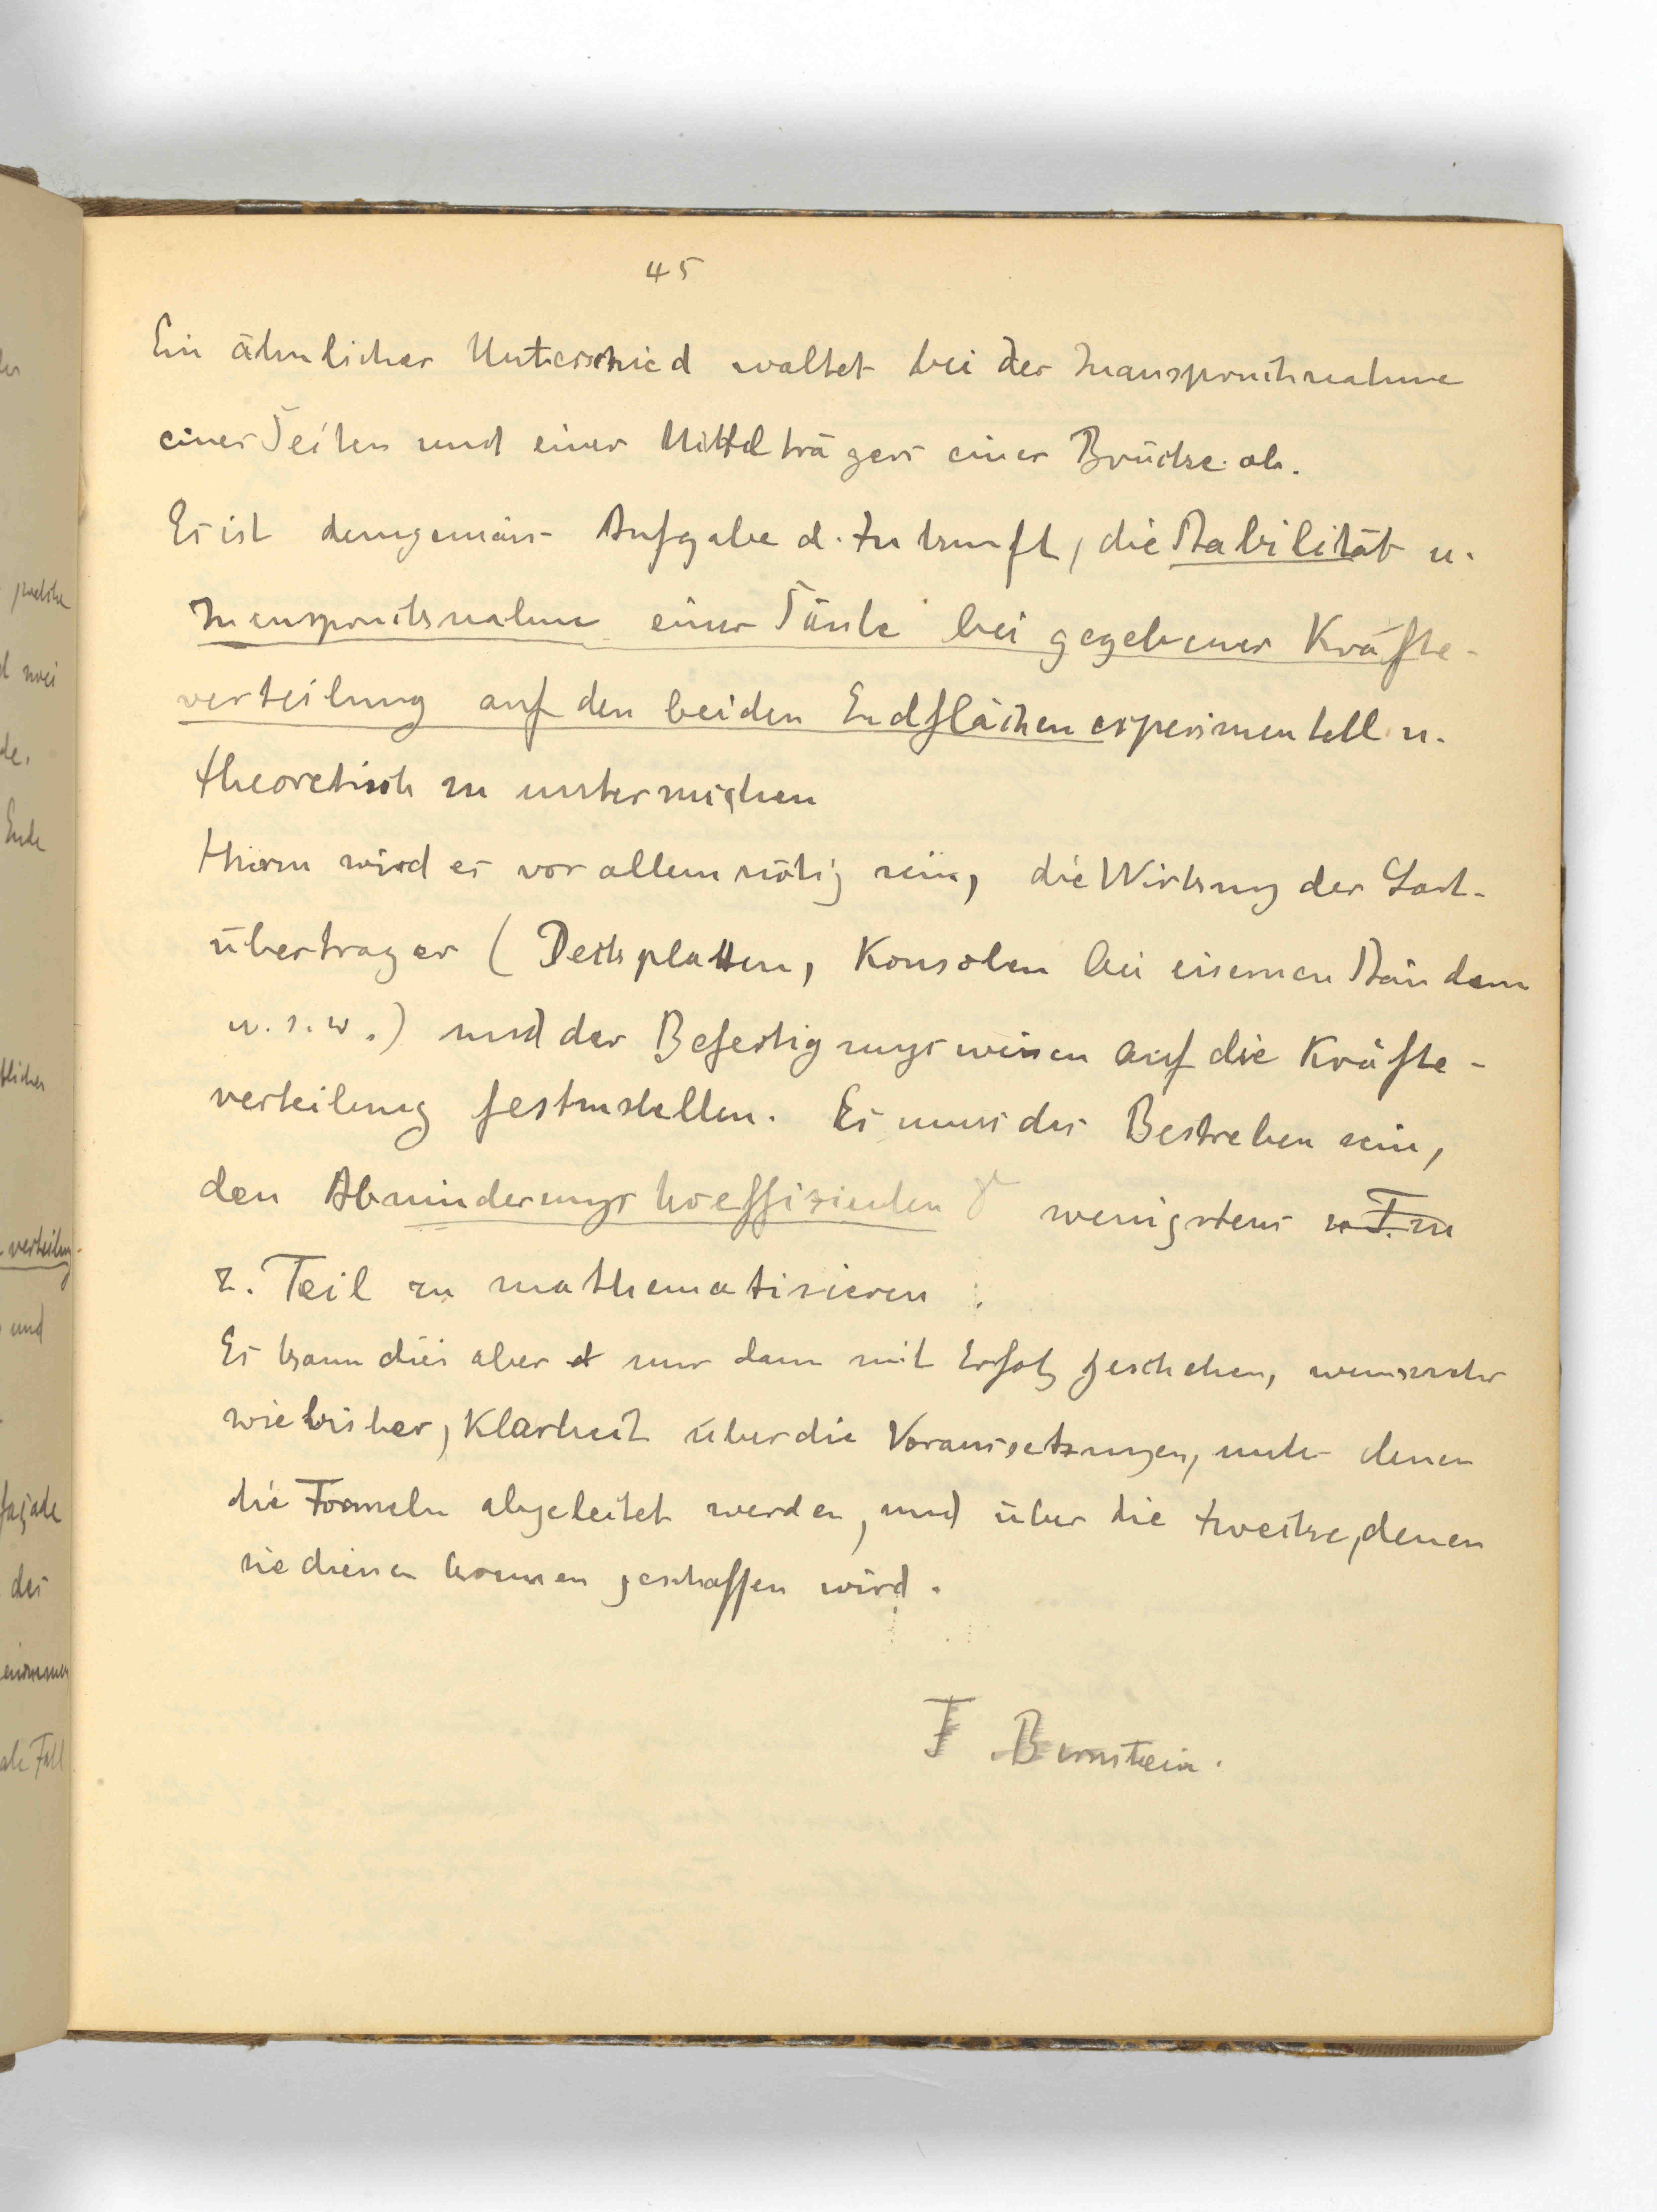 45
Ein ähnlicher Unterschied waltet bei der Inanspruchnahme
eines Seiten und eines Mittelträgers einer Brücke ob.
Es ist demgemäss Aufgabe d. Zukunft, die Stabilität u.
Inanspruchsnahme einer Säule bei gegebener Kräfte-
verteilung auf den beiden Endflächen experimentell u.
theoretisch zu untersuchen
Hierzu wird es vor allem nötig sein, die Wirkung der Last-
übertrager (Deckplatten, Konsolen bei eisernen Ständern
u.s.w.) und der Befestigungsweisen auf die Kräfte-
verteilung festzustellen. Es muss das Bestreben sein,
den Abminderungskoeffizienten γ wenigstens z. T. zu
z. Teil zu mathematisieren.
Es kann dies aber nur dann mit Erfolg geschehen, wenn mehr
wie bisher, Klarheit über die Voraussetzungen, unter denen
die Formeln abgeleitet werden, und über die Zwecke, denen
sie dienen können geschaffen wird.
F Bernstein.
welche
de.
Ende
tlicher
verteilung
und
des
enommen
Fall